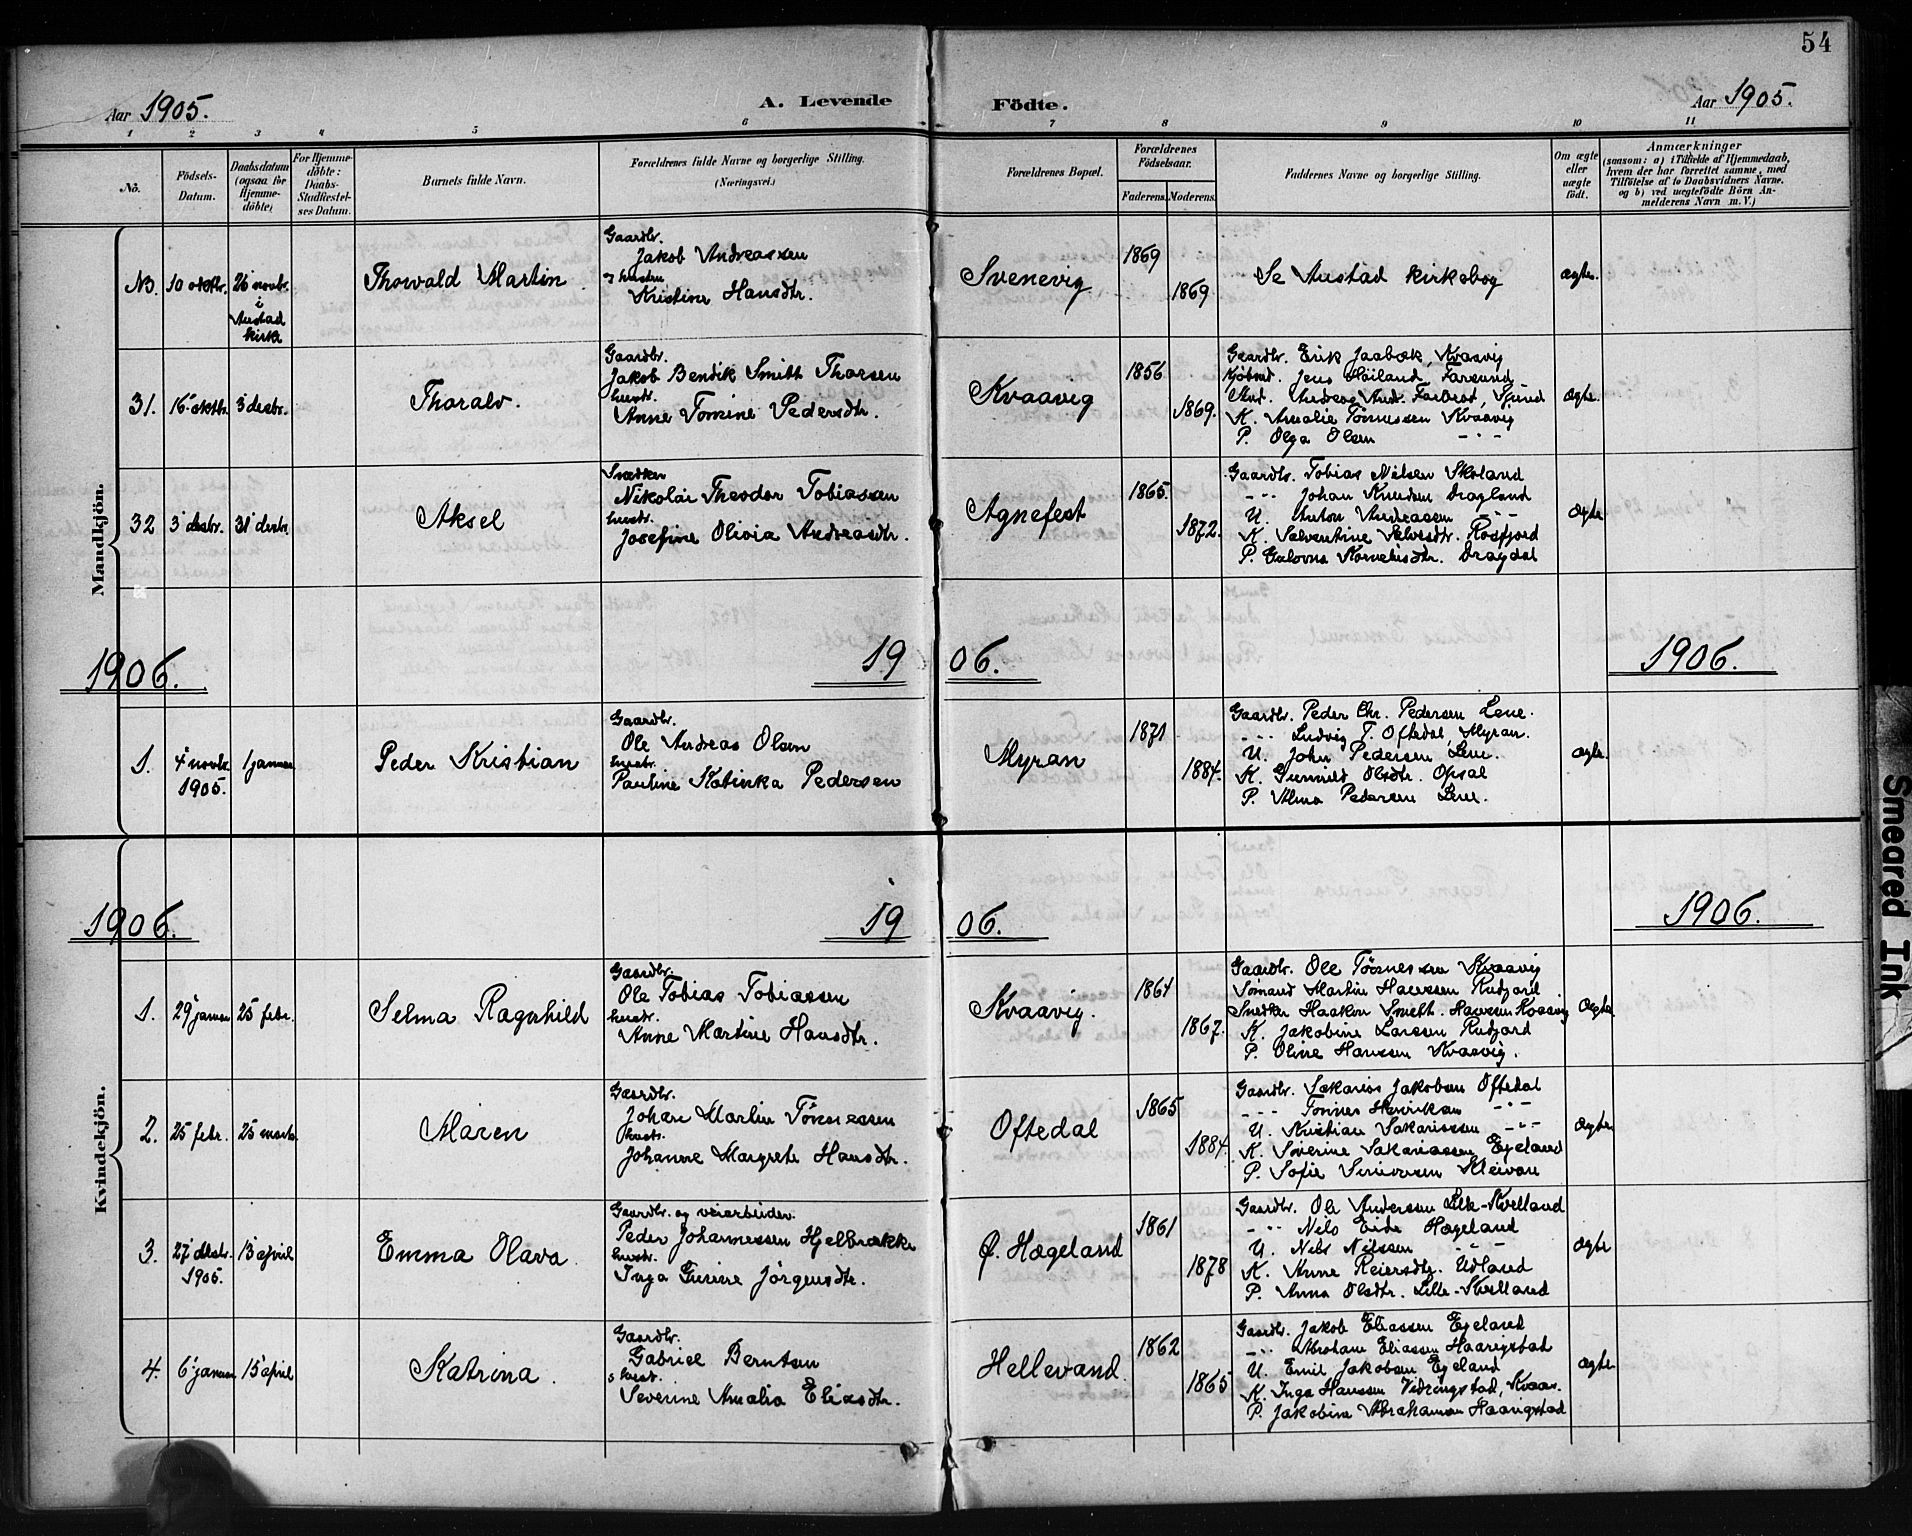 54
Aar 1905.
A. Levende Födte.
Aar 1905.
1 2 3 4 5 6 7 8 9 10 11
No.
Födsels-Datum.
Daabsdatum (ogsaa for Hjemme-döbte)
For Hjemme-döbte: Daabs-Stadfæstel-ses Datum.
Barnets fulde Navn.
Forældrenes fulde Navne og borgerlige Stilling.
(Næringsvei.)
Forældrenes Bopæl.
Forældrenes Födselsaar.
Faderens. Moderens.
Faddernes Navne og borgerlige Stilling.
Om ægte eller uægte födt.
Anmærkninger
(saasom: a) i Tilfælde af Hjemmedaab,
hvem der har forrettet samme, med
Tilföielse af to Daabsvidners Navne.
og b) ved uægtefödte Börn An-
melderens Navn m. V.)
Mandkjön.
NB. 10 oktbr. 26 novbr. i Austad kirke
Thorvald Martin
Gaardbr.
Jakob Andreassen
o hustru
Kristine Hansdtr.
Svenevig
1869
1869
Se Austad kirkebog
ægte.
31. 16 oktbr. 3 desbr.
Thoralv.
Gaardbr.
Jakob Bendik Smith Thorsen
hustr.
Anne Tomine Pedersdtr.
Kvaavig
1856
1869.
Gaardbr. Erik Jaabæk, Kvaavig
Kjöbmd. Jens Höiland, Farsund
K. Amalie Tönnessen Kvaavig
P. Olga Olsen - " -
ægte.
32 3 desbr. 31 desbr.
Aksel
Snedker
Nikolai Theodor Tobiassen
hustr.
Josefine Olivia Andreasdtr.
Agnefest
1865.
1872.
Gaardbr. Tobias Nilsen Skoland
- " - Johan Knudsen Dragland
U. Anton Andreassen - " -
K. Salventine Salvesdtr. Rosfjord
P. Galovna Kornelusdtr. Dragdal
Ægte
1906. 1906. 1906.
1. 4 novbr. 1905. 1 januar
Peder Kristian
Gaardbr.
Ole Andreas Olsen
hustr.
Pauline Katinka Pedersen
Myran
1871
1884.
Gaardbr. Peder Chr. Pedersen Lene.
- " - Ludvig T. Oftedal, Myran.
U. John Pedersen Lene.
K. Gunnild Olsdtr. Opsal
P. Alma Pedersen Lene.
ægte.
Kvindekjön.
1906. 1906. 1906.
1. 29 januar 25 febr.
Selma Ragnhild
Gaardbr.
Ole Tobias Tobiassen
hustr.
Anne Martine Hansdtr.
Kvaavig.
1864
1867.
Gaardbr. Ole Tönnessen Kvaavig
Sömand Martin Hanssen Rudjord
Snedker Haakon Smith Hanssen Kvaavig
K. Jakobine Larssen Rudjord
P. Oline Hanssen Kvaavig.
Ægte
2. 25 febr. 25 marts
Maren
Gaardbr.
Johan Martin Tönnessen
hustr.
Johanne Margrete Hansdtr.
Oftedal
1865
1884.
Gaardbr. Sakarias Jakobsen Oftedal
- " - Tönnes Henriksen - " -
U. Kristian Sakariassen - " -
K. Severine Sakariassen Egeland
P. Sofie Kleivan
Ægte
3. 27 desbr. 1905. 13 april
Emma Olava.
Gaardbr. og veiarbeider.
Peder Johannessen Hjelbrække
hustr.
Inga Gurine Jörgensdtr.
Ö. Hægeland
1861
1878
Gaardbr. Ole Anderssen Lille-Kvelland
- " - Nils Eide Hægeland
U. Nils Nilssen - " -
K. Anne Reiersdtr. Udland
P. Anna Olsdtr. Lille-Kvelland
Ægte
4. 6 januar 15 april
Katrina.
Gaardbr.
Gabriel Berntsen
o hustr.
Severine Amalia Eliasdtr.
Hellevand.
1862
1865
Gaardbr. Jakob Eliassen Egeland
- " - Abraham Eliassen Haarigstad
U. Emil Jakobsen Egeland
K. Inga Hanssen Vidringstad, Kvaas.
P. Jakobine Abrahamsen Haarigstad
Ægte
Smeared Ink